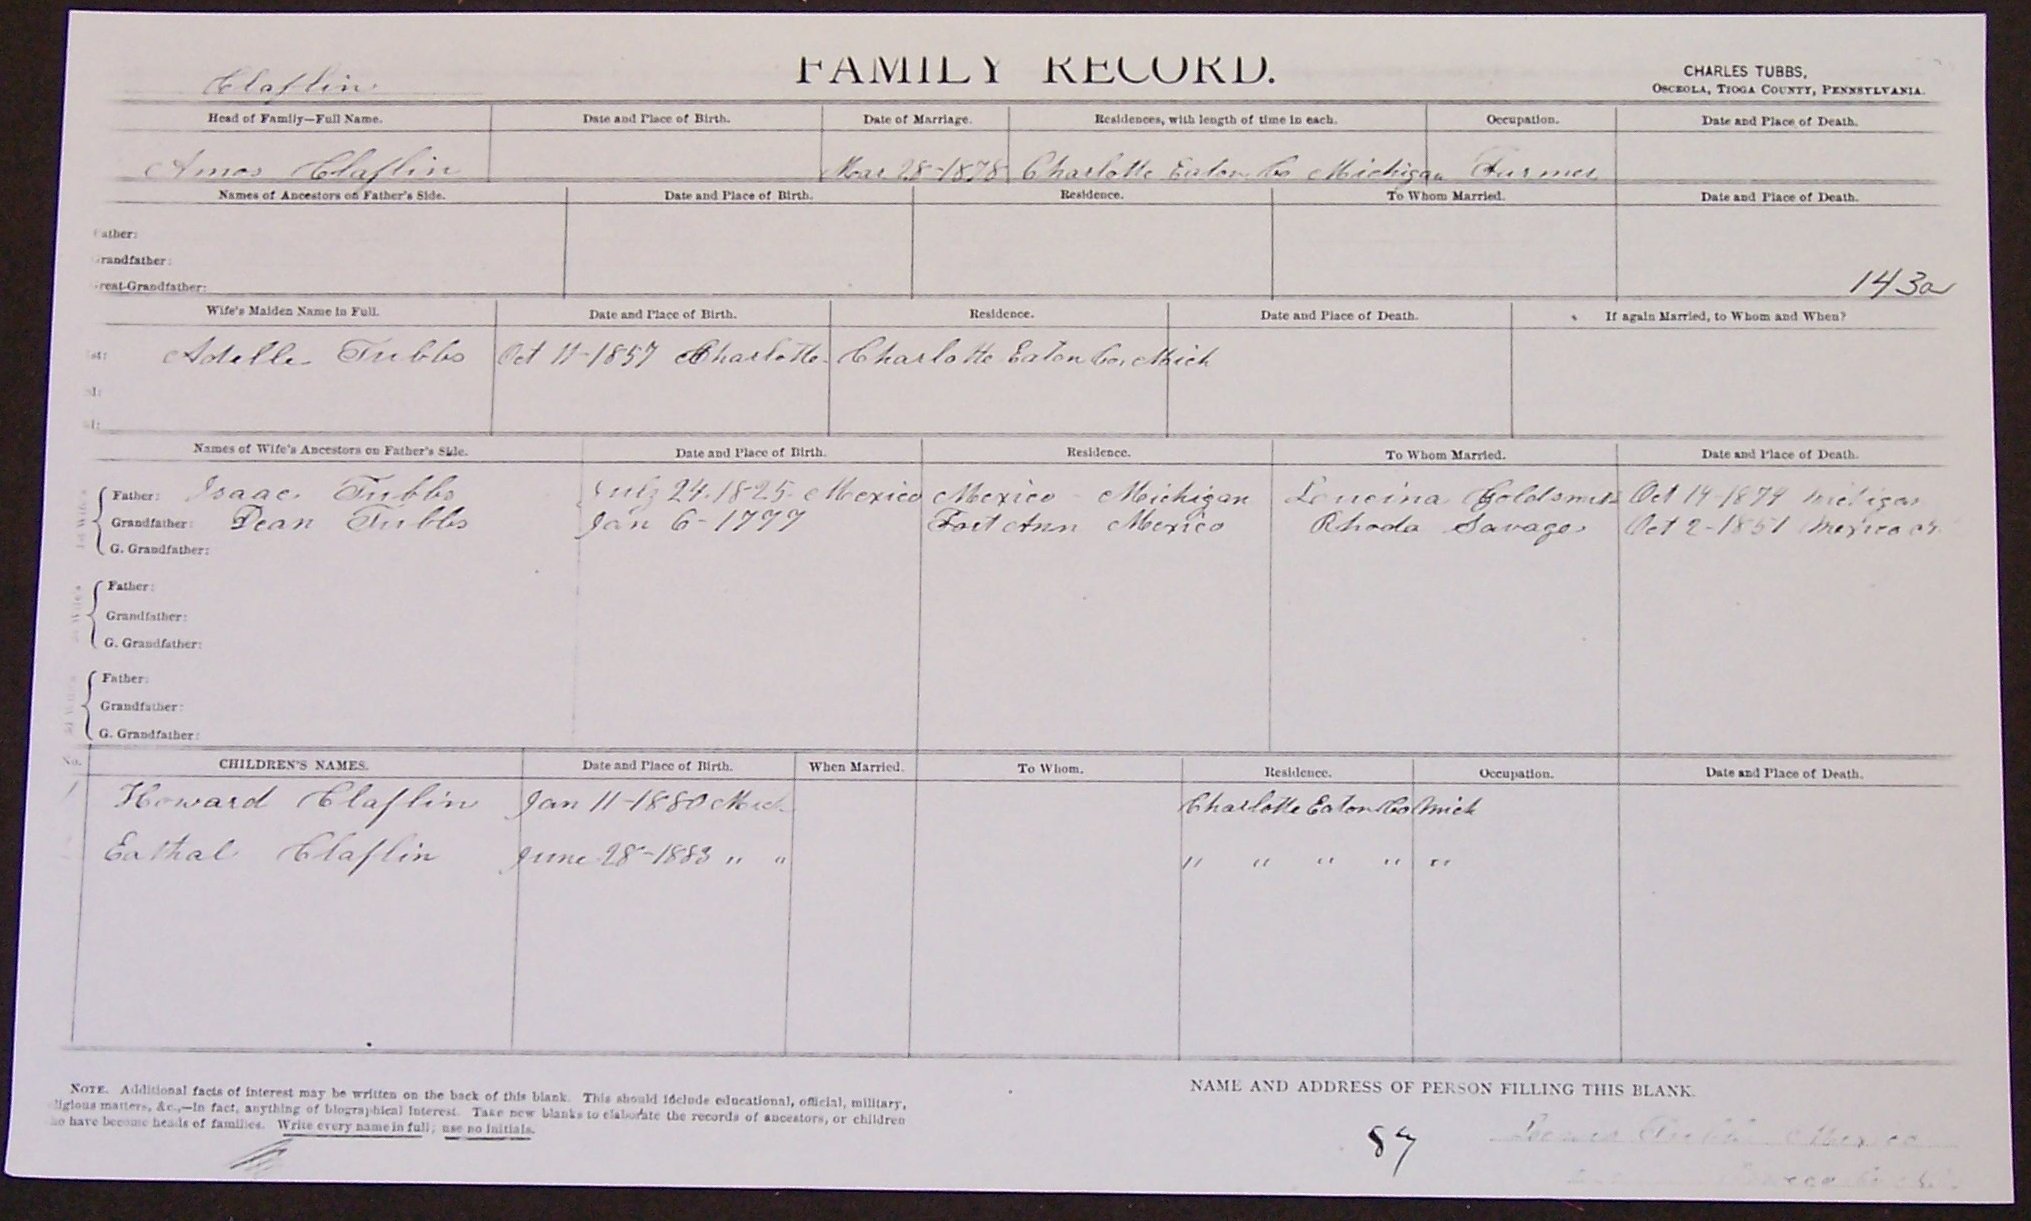 Claflin
FAMILY RECORD.
CHARLES TUBBS,
OSCEOLA, TIOGA COUNTY, PENNSYLVANIA.
Head of Family—Full Name. Date and Place of Birth. Date of Marriage. Residences, with length of time in each. Occupation. Date and Place of Death.
Amos Claflin Mar 28-1878 Charlotte Eaton Co Michigan Farmer
Names of Ancestors on Father's Side. Date and Place of Birth. Residence. To Whom Married. Date and Place of Death.
ather:
randfather:
reat-Grandfather:
143a
Wife's Maiden Name in Full. Date and Place of Birth. Residence. Date and Place of Death. If again Married, to Whom and When?
Adelle Tubbs Oct 11-1857 Charlotte Charlotte Eaton Co, Mich
Names of Wife's Ancestors on Father's Side. Date and Place of Birth. Residence. To Whom Married. Date and Place of Death.
Father: Isaac Tubbs July 24-1825 Mexico Mexico - Michigan Goldsmith Oct 19-1879 Michigan
Grandfather: Dean Tubbs Jan 6-1799 Fort Ann Mexico Rhoda Savage Oct 2-1851 Mexico
G. Grandfather:
Father:
Grandfather:
G. Grandfather:
Father:
Grandfather:
G. Grandfather:
No. CHILDREN'S NAMES. Date and Place of Birth. When Married. To Whom. Residence. Occupation. Date and Place of Death.
1 Howard Claflin Jan 11-1880 Mich Charlotte Eaton Co Mich
Eathal Claflin June 28-1883 " " " " " " "
NOTE. Additional facts of interest may be written on the back of this blank. This should include educational, official, military,
ligious matters, &c.,—in fact, anything of biographical interest. Take new blanks to elaborate the records of ancestors, or children
ho have become heads of families. Write every name in full; use no initials.
NAME AND ADDRESS OF PERSON FILLING THIS BLANK.
87 Tubbs Mexico